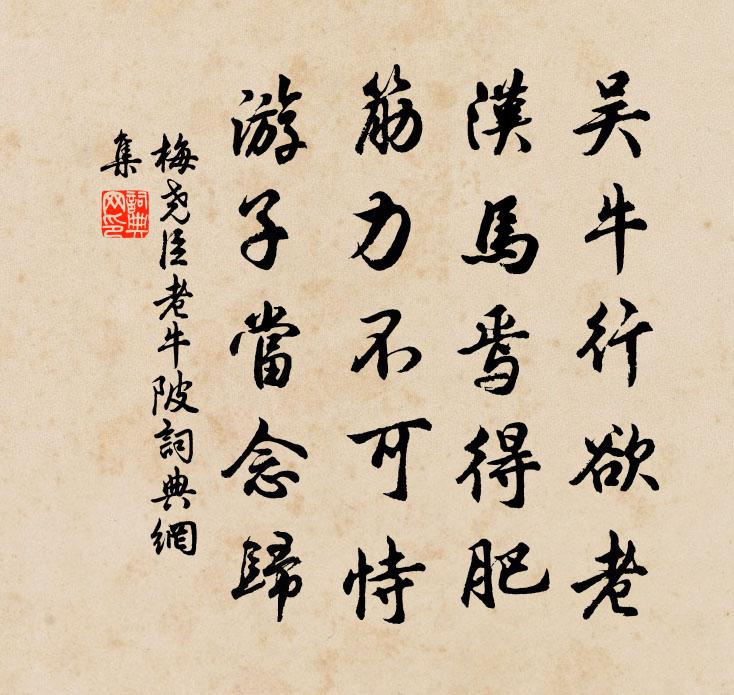 吴牛行欲老
漢馬焉得肥
筋力不可恃
游子當念歸
梅堯臣老牛陂詞典網
集
詞典網印